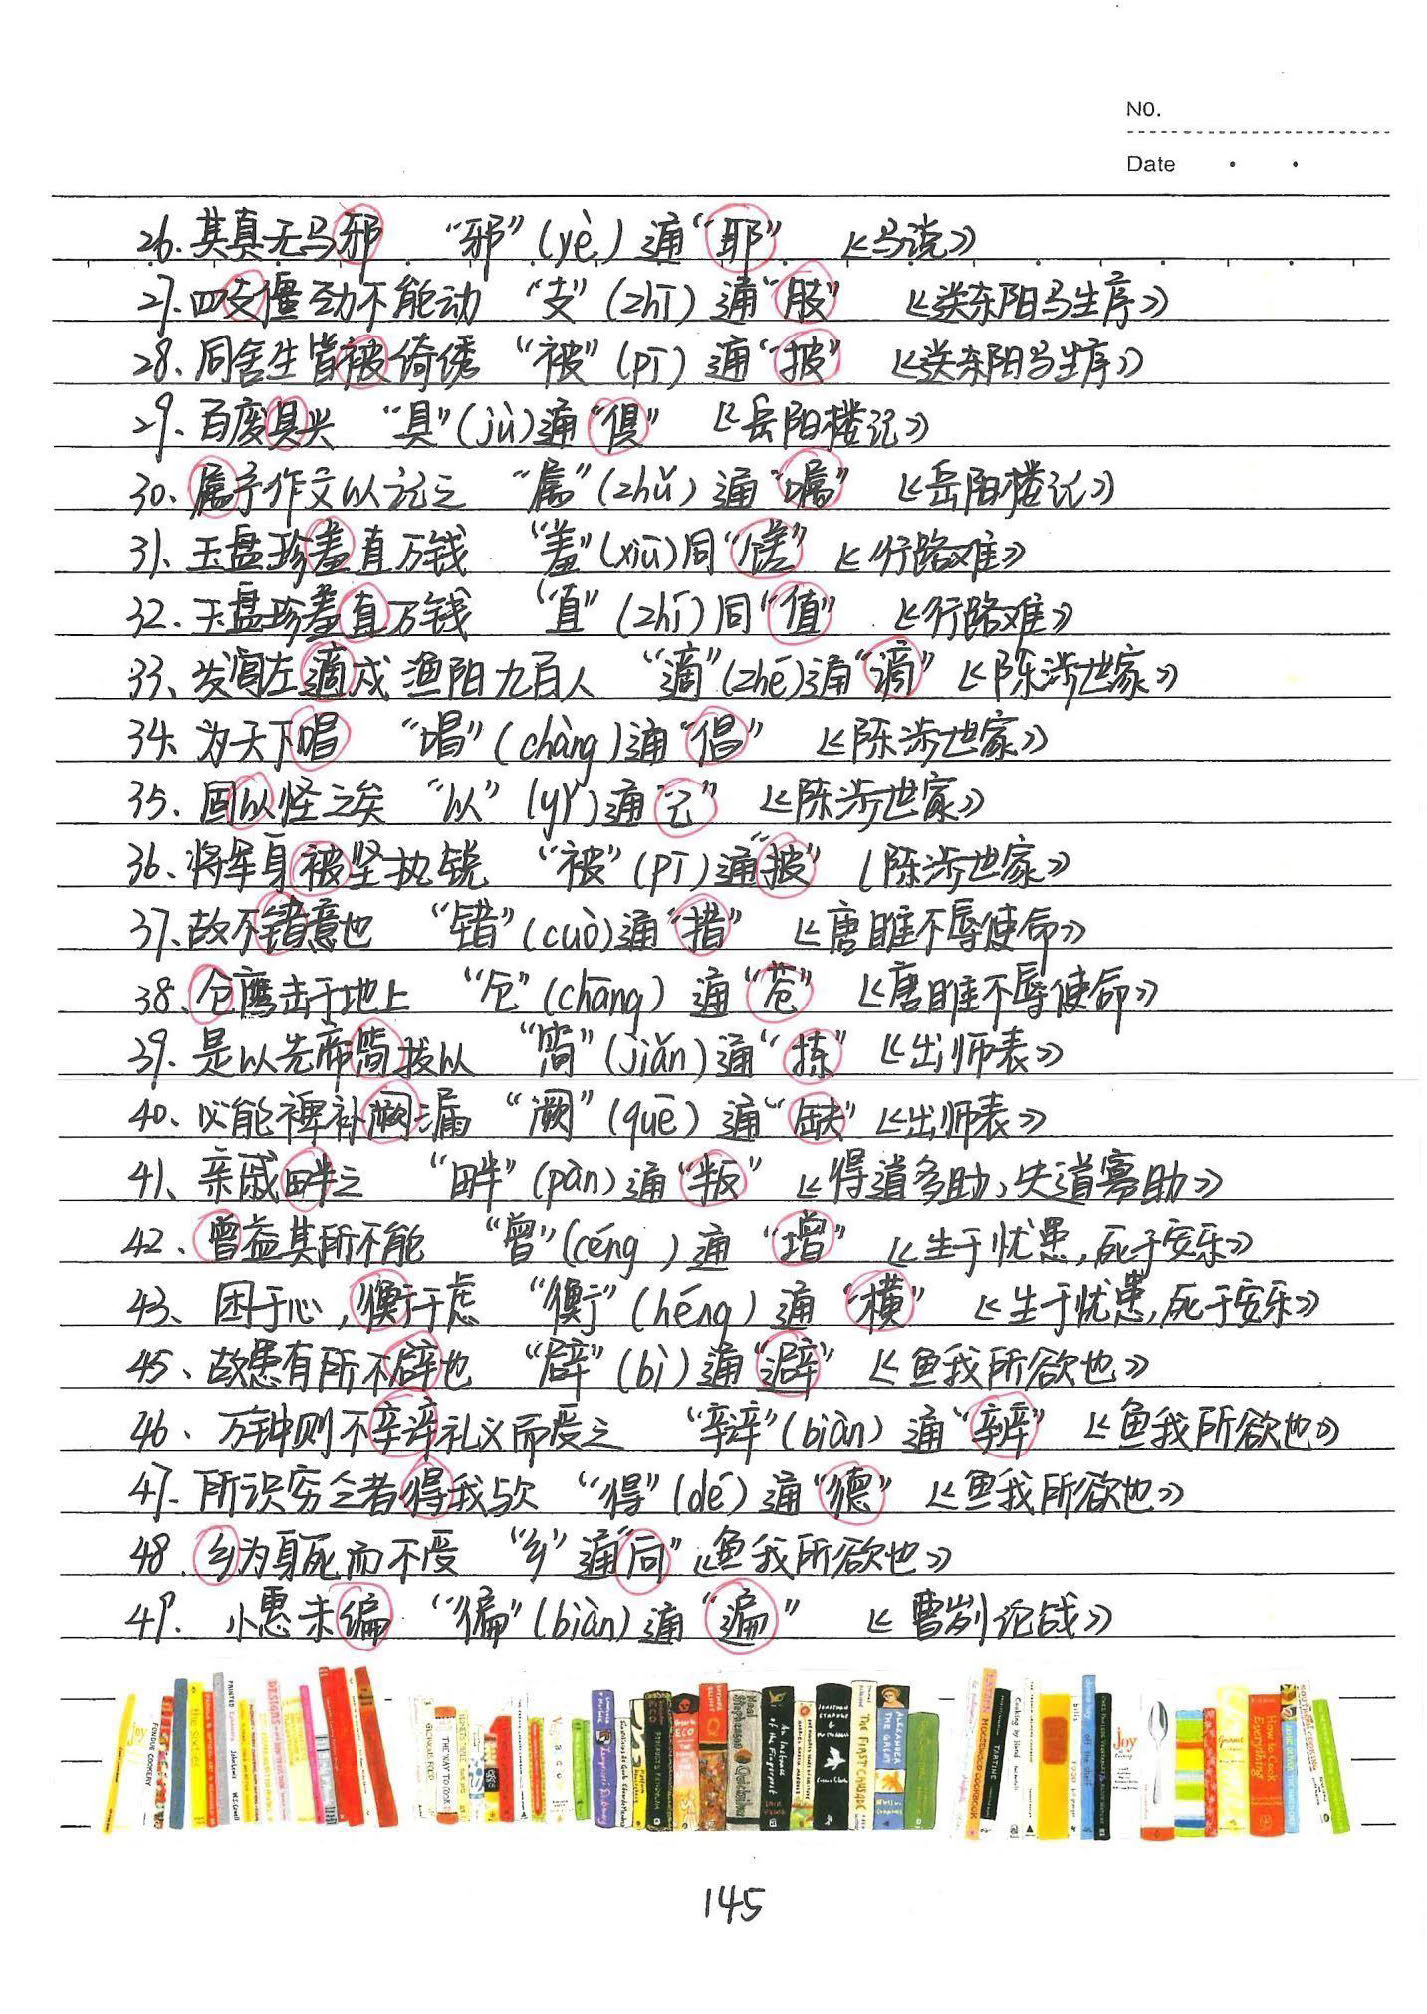 NO.
Date
26. 其真无马邪 “邪”(yè)通“耶” 《马说》
27. 四支僵劲不能动 “支”(zhī)通“肢” 《送东阳马生序》
28. 同舍生皆被绮绣 “被”(pī)通“披” 《送东阳马生序》
29. 百废具兴 “具”(jù)通“俱” 《岳阳楼记》
30、属予作文以记之 “属”(zhǔ)通“嘱” 《岳阳楼记》
31、玉盘珍羞直万钱 “羞”(xiū)同“馐” 《行路难》
32. 玉盘珍羞直万钱 “直”(zhí)同“值” 《行路难》
33、发闾左適戍渔阳九百人 “適”(zhé)通“谪” 《陈涉世家》
34、为天下唱 “唱”(chàng)通“倡” 《陈涉世家》
35、固以怪之矣 “以”(yǐ)通“已” 《陈涉世家》
36、将军身被坚执锐 “被”(pī)通“披” 《陈涉世家》
37、故不错意也 “错”(cuò)通“措” 《唐雎不辱使命》
38、仓鹰击于地上 “仓”(chāng)通“苍” 《唐雎不辱使命》
39. 是以先帝简拔以 “简”(jiǎn)通“拣” 《出师表》
40、必能裨补阙漏 “阙”(quē)通“缺” 《出师表》
41、亲戚畔之 “畔”(pàn)通“叛” 《得道多助,失道寡助》
42、曾益其所不能 “曾”(céng)通“增” 《生于忧患,死于安乐》
43、困于心,衡于虑 “衡”(héng)通“横” 《生于忧患,死于安乐》
45、故患有所不辟也 “辟”(bì)通“避” 《鱼我所欲也》
46、万钟则不辩礼义而受之 “辩”(biàn)通“辨” 《鱼我所欲也》
47. 所识穷乏者得我与欤 “得”(dé)通“德” 《鱼我所欲也》
48. 乡为身死而不受 “乡”通“向” 《鱼我所欲也》
49. 小惠未徧 “徧”(biàn)通“遍” 《曹刿论战》
145